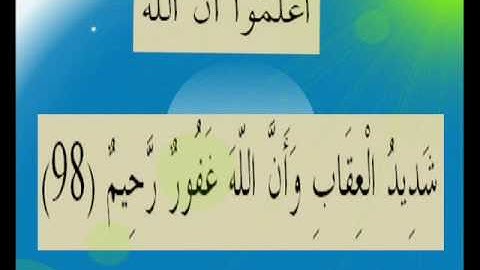 اعلموا أن الله
شَدِيدُ الْعِقَابِ وَأَنَّ اللّهَ غَفُورٌ رَّحِيمٌ (98)